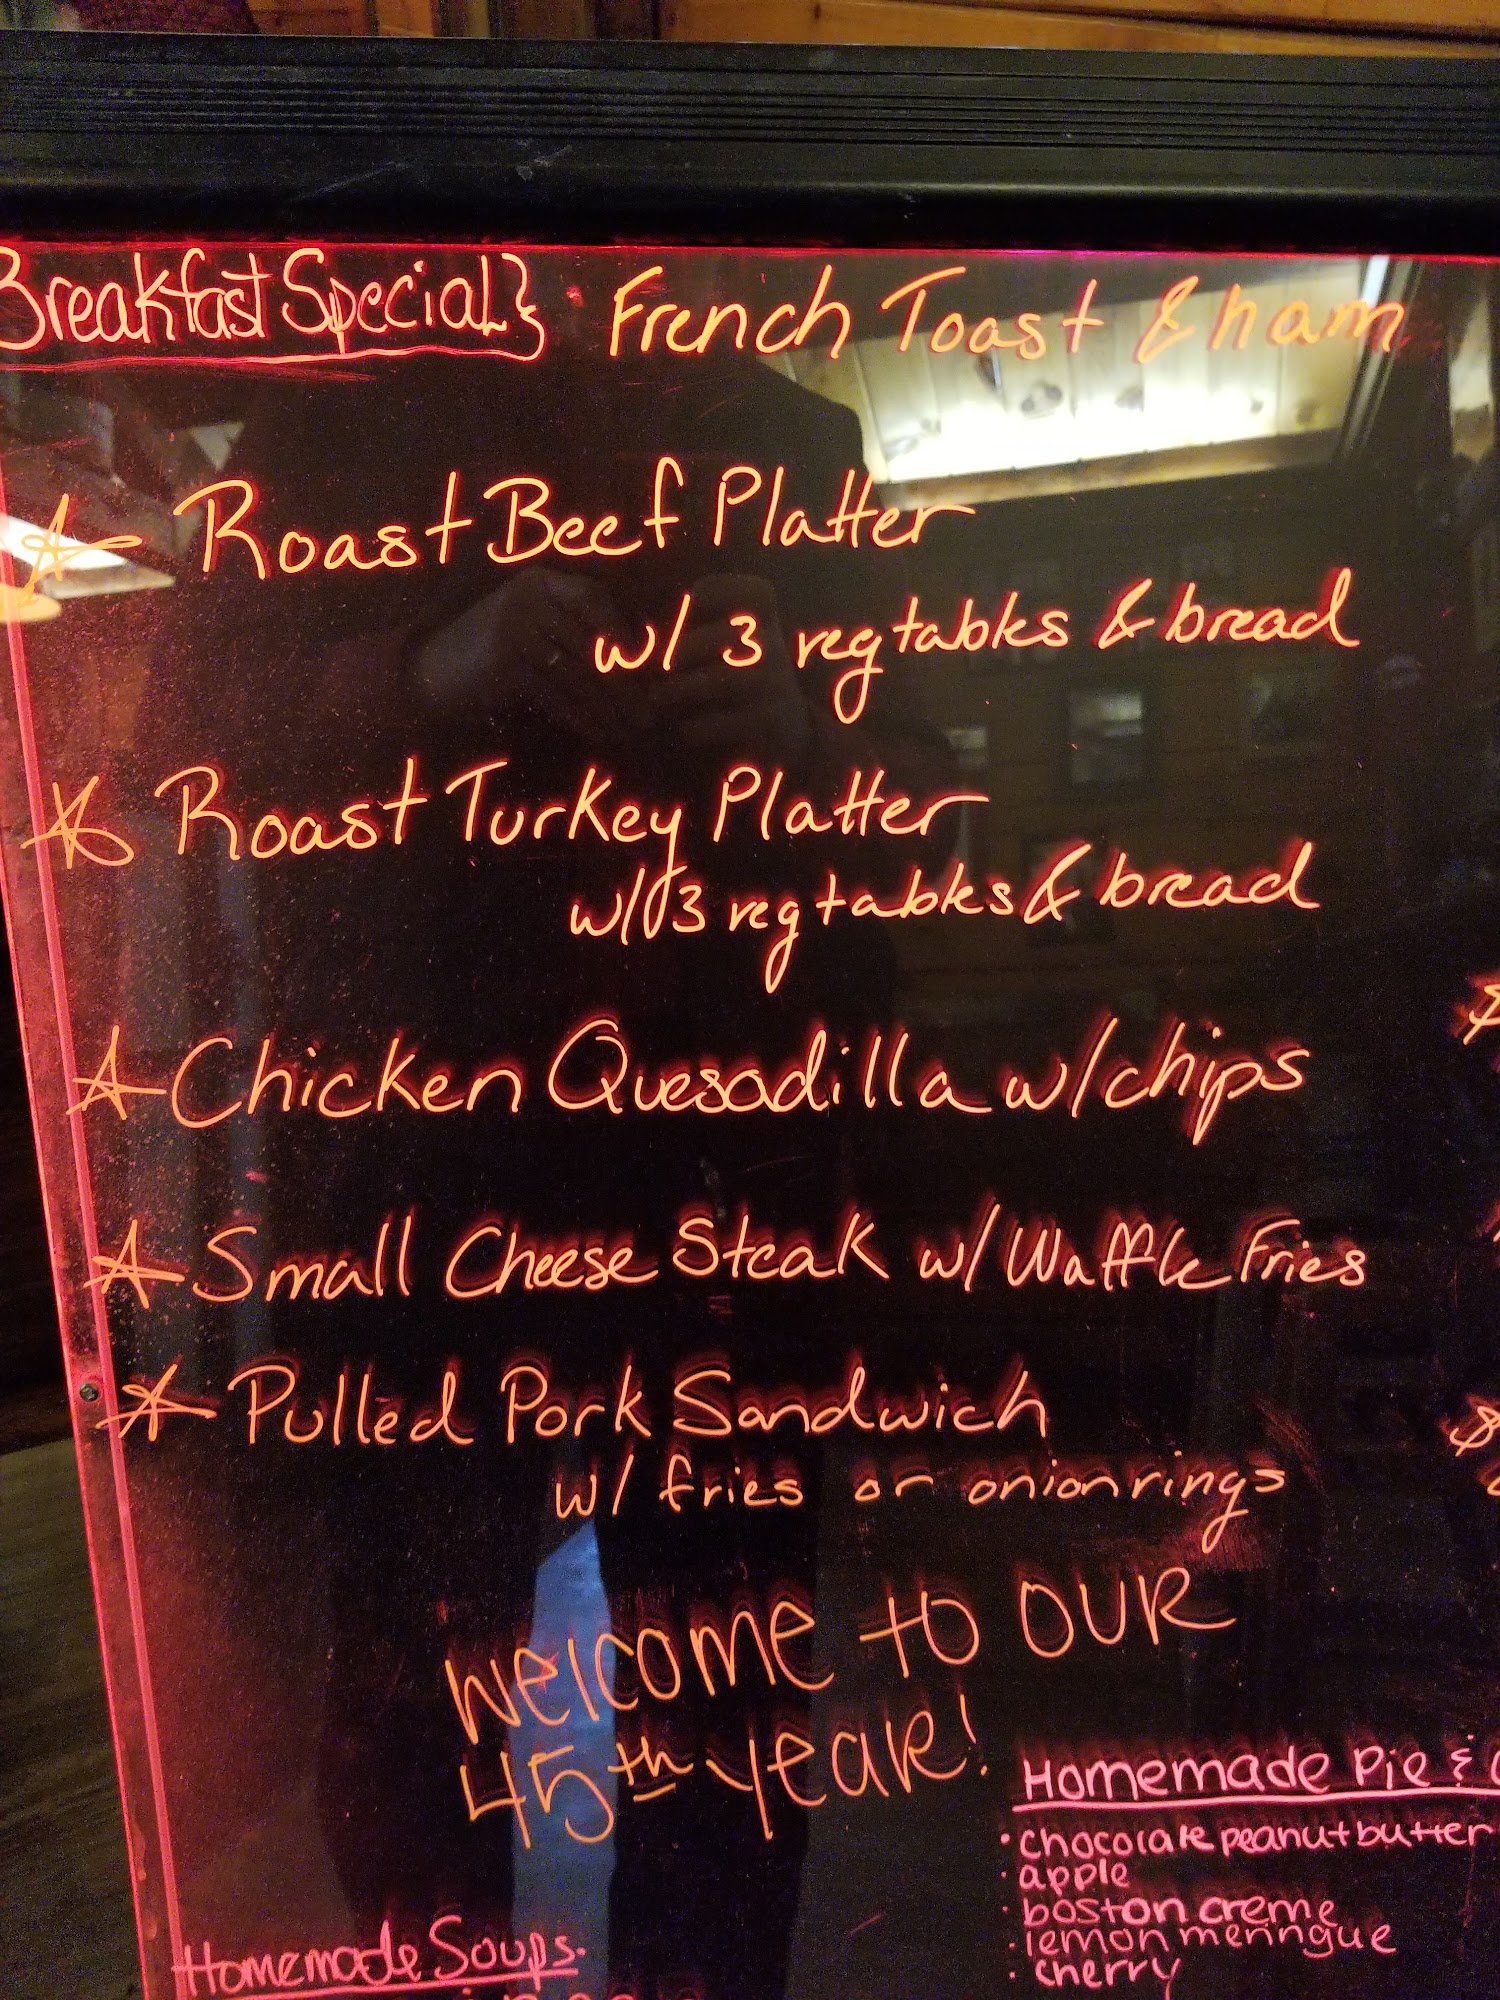 Breakfast Special} French Toast & ham
Roast Beef Platter
w/ 3 vegtables & bread
Roast Turkey Platter
w/ 3 vegtables & bread
$
Chicken Quesadilla w/chips
Small Cheese Steak w/ Waffle Fries
Pulled Pork Sandwich
$
w/ fries or onion rings
Welcome to our
45th year!
Homemade Pie &
• chocolate peanut butter
• apple
• boston creme
• lemon meringue
• cherry
Homemade Soups.